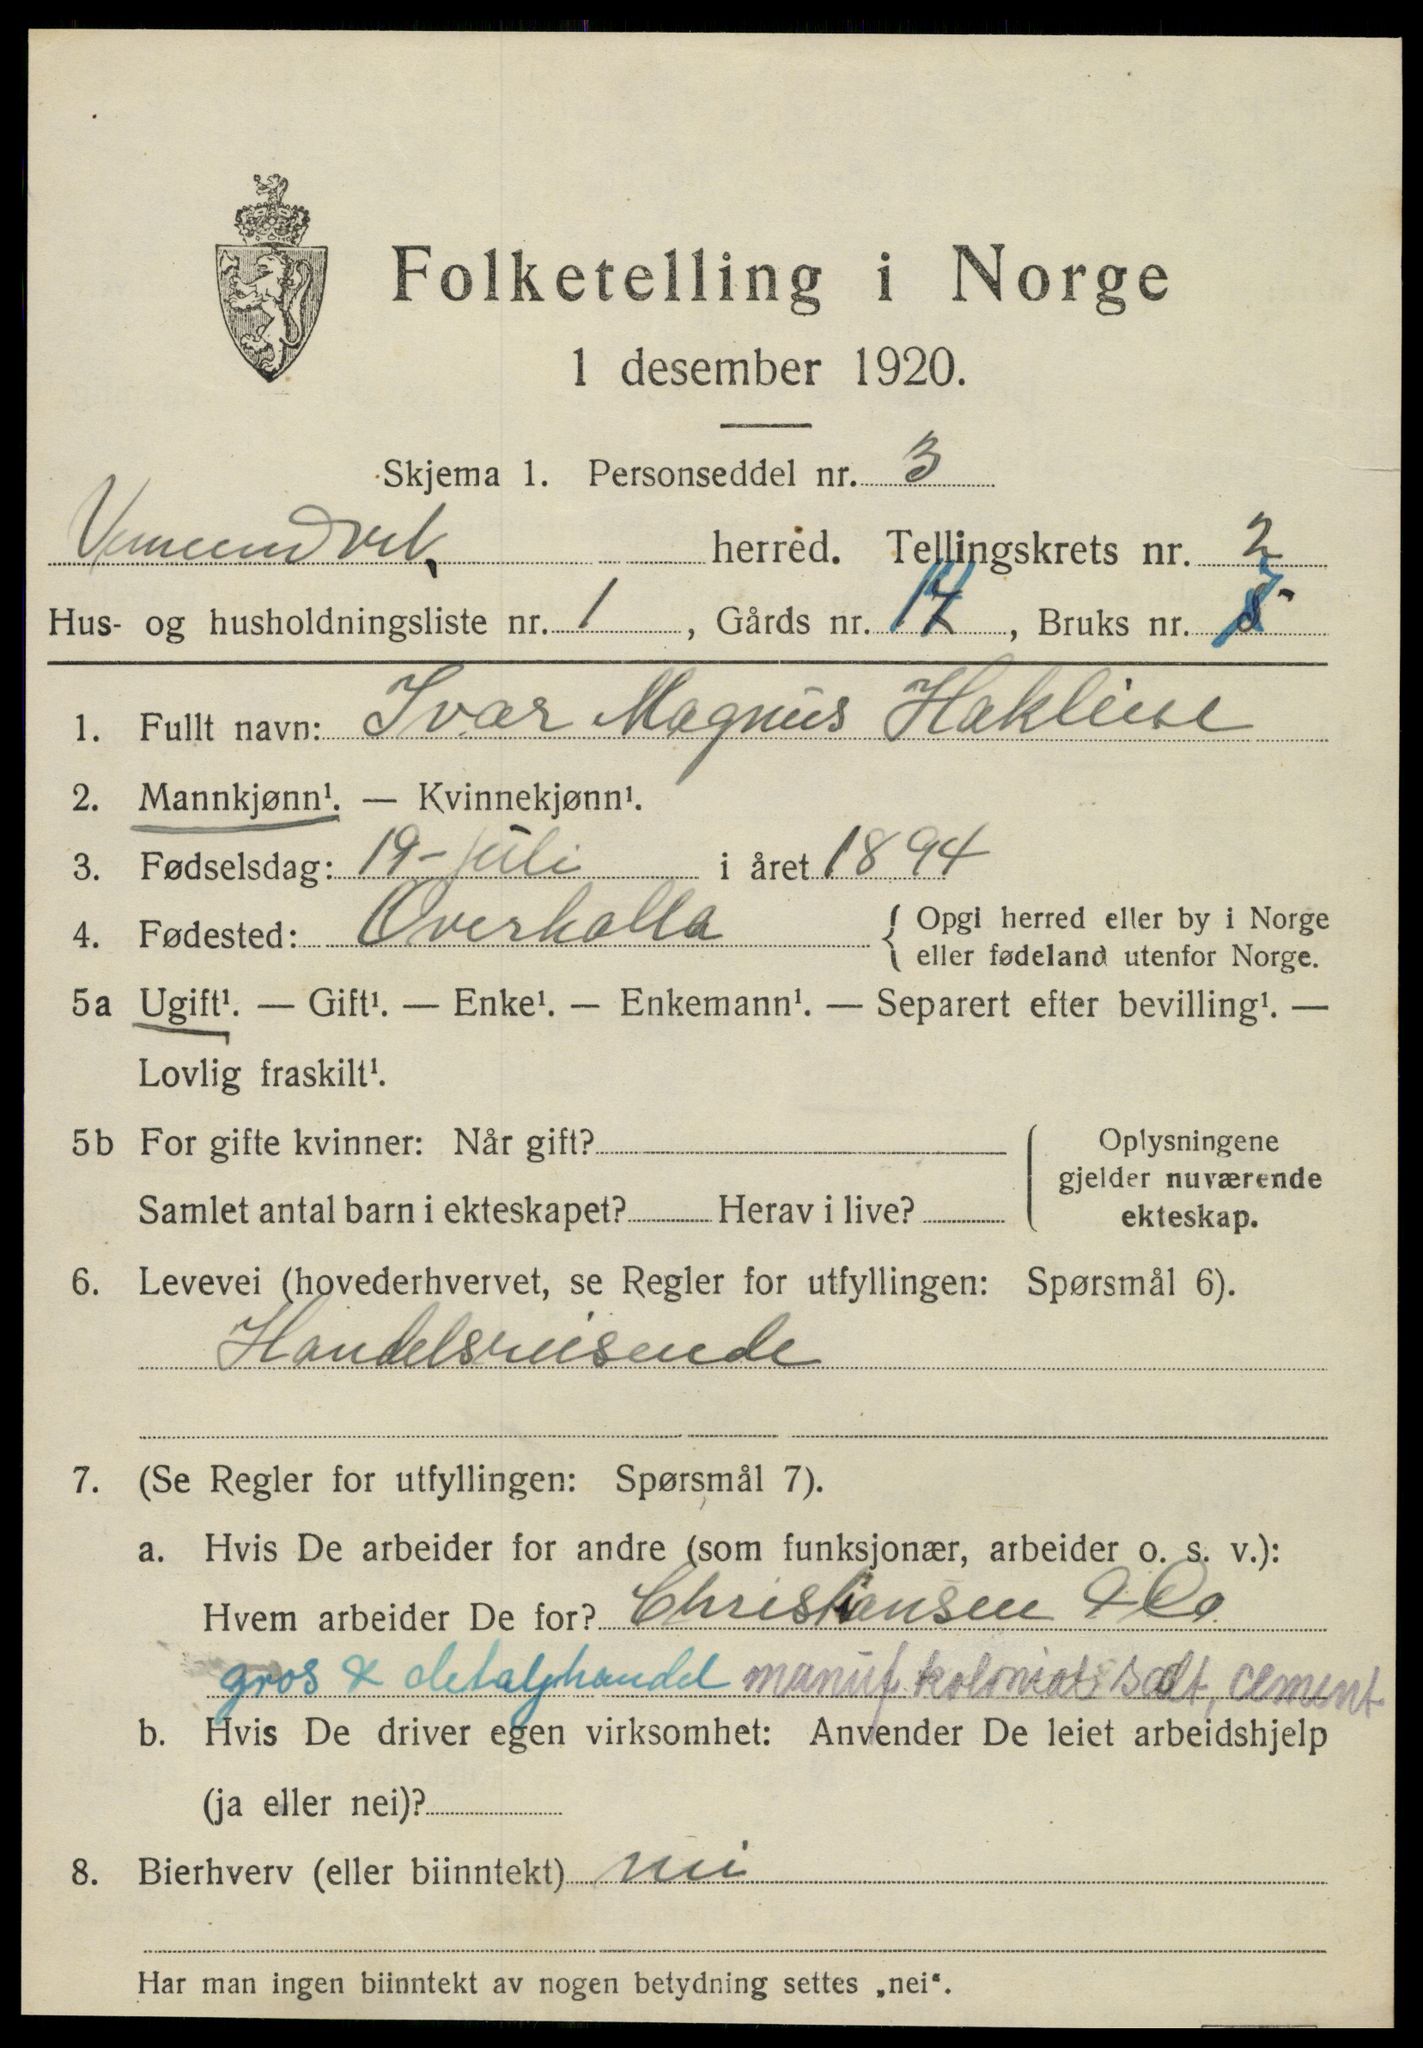 Folketelling i Norge
1 desember 1920.
Skjema 1. Personseddel nr. 3
Vemundvik herred. Tellingskrets nr. 2
Hus- og husholdningsliste nr. 1, Gårds nr. 14, Bruks nr.
1. Fullt navn: Ivar Magnus Haklien
2. Mannkjønn¹. — Kvinnekjønn¹.
3. Fødselsdag: 19-juli i året 1894
4. Fødested: Overhalla { Opgi herred eller by i Norge
eller fødeland utenfor Norge.
5a Ugift¹. — Gift¹. — Enke¹. — Enkemann¹. — Separert efter bevilling¹. —
Lovlig fraskilt¹.
5b For gifte kvinner: Når gift?
Samlet antal barn i ekteskapet? Herav i live?
Oplysningene
gjelder nuværende
ekteskap.
6. Levevei (hovederhvervet, se Regler for utfyllingen: Spørsmål 6).
Handelsreisende
7. (Se Regler for utfyllingen: Spørsmål 7).
a. Hvis De arbeider for andre (som funksjonær, arbeider o. s. v.):
Hvem arbeider De for? Christiansen & Co
gros & detaljhandel manuf. kolonial, salt, cement
b. Hvis De driver egen virksomhet: Anvender De leiet arbeidshjelp
(ja eller nei)?
8. Bierhverv (eller biinntekt) nei
Har man ingen biinntekt av nogen betydning settes „nei“.